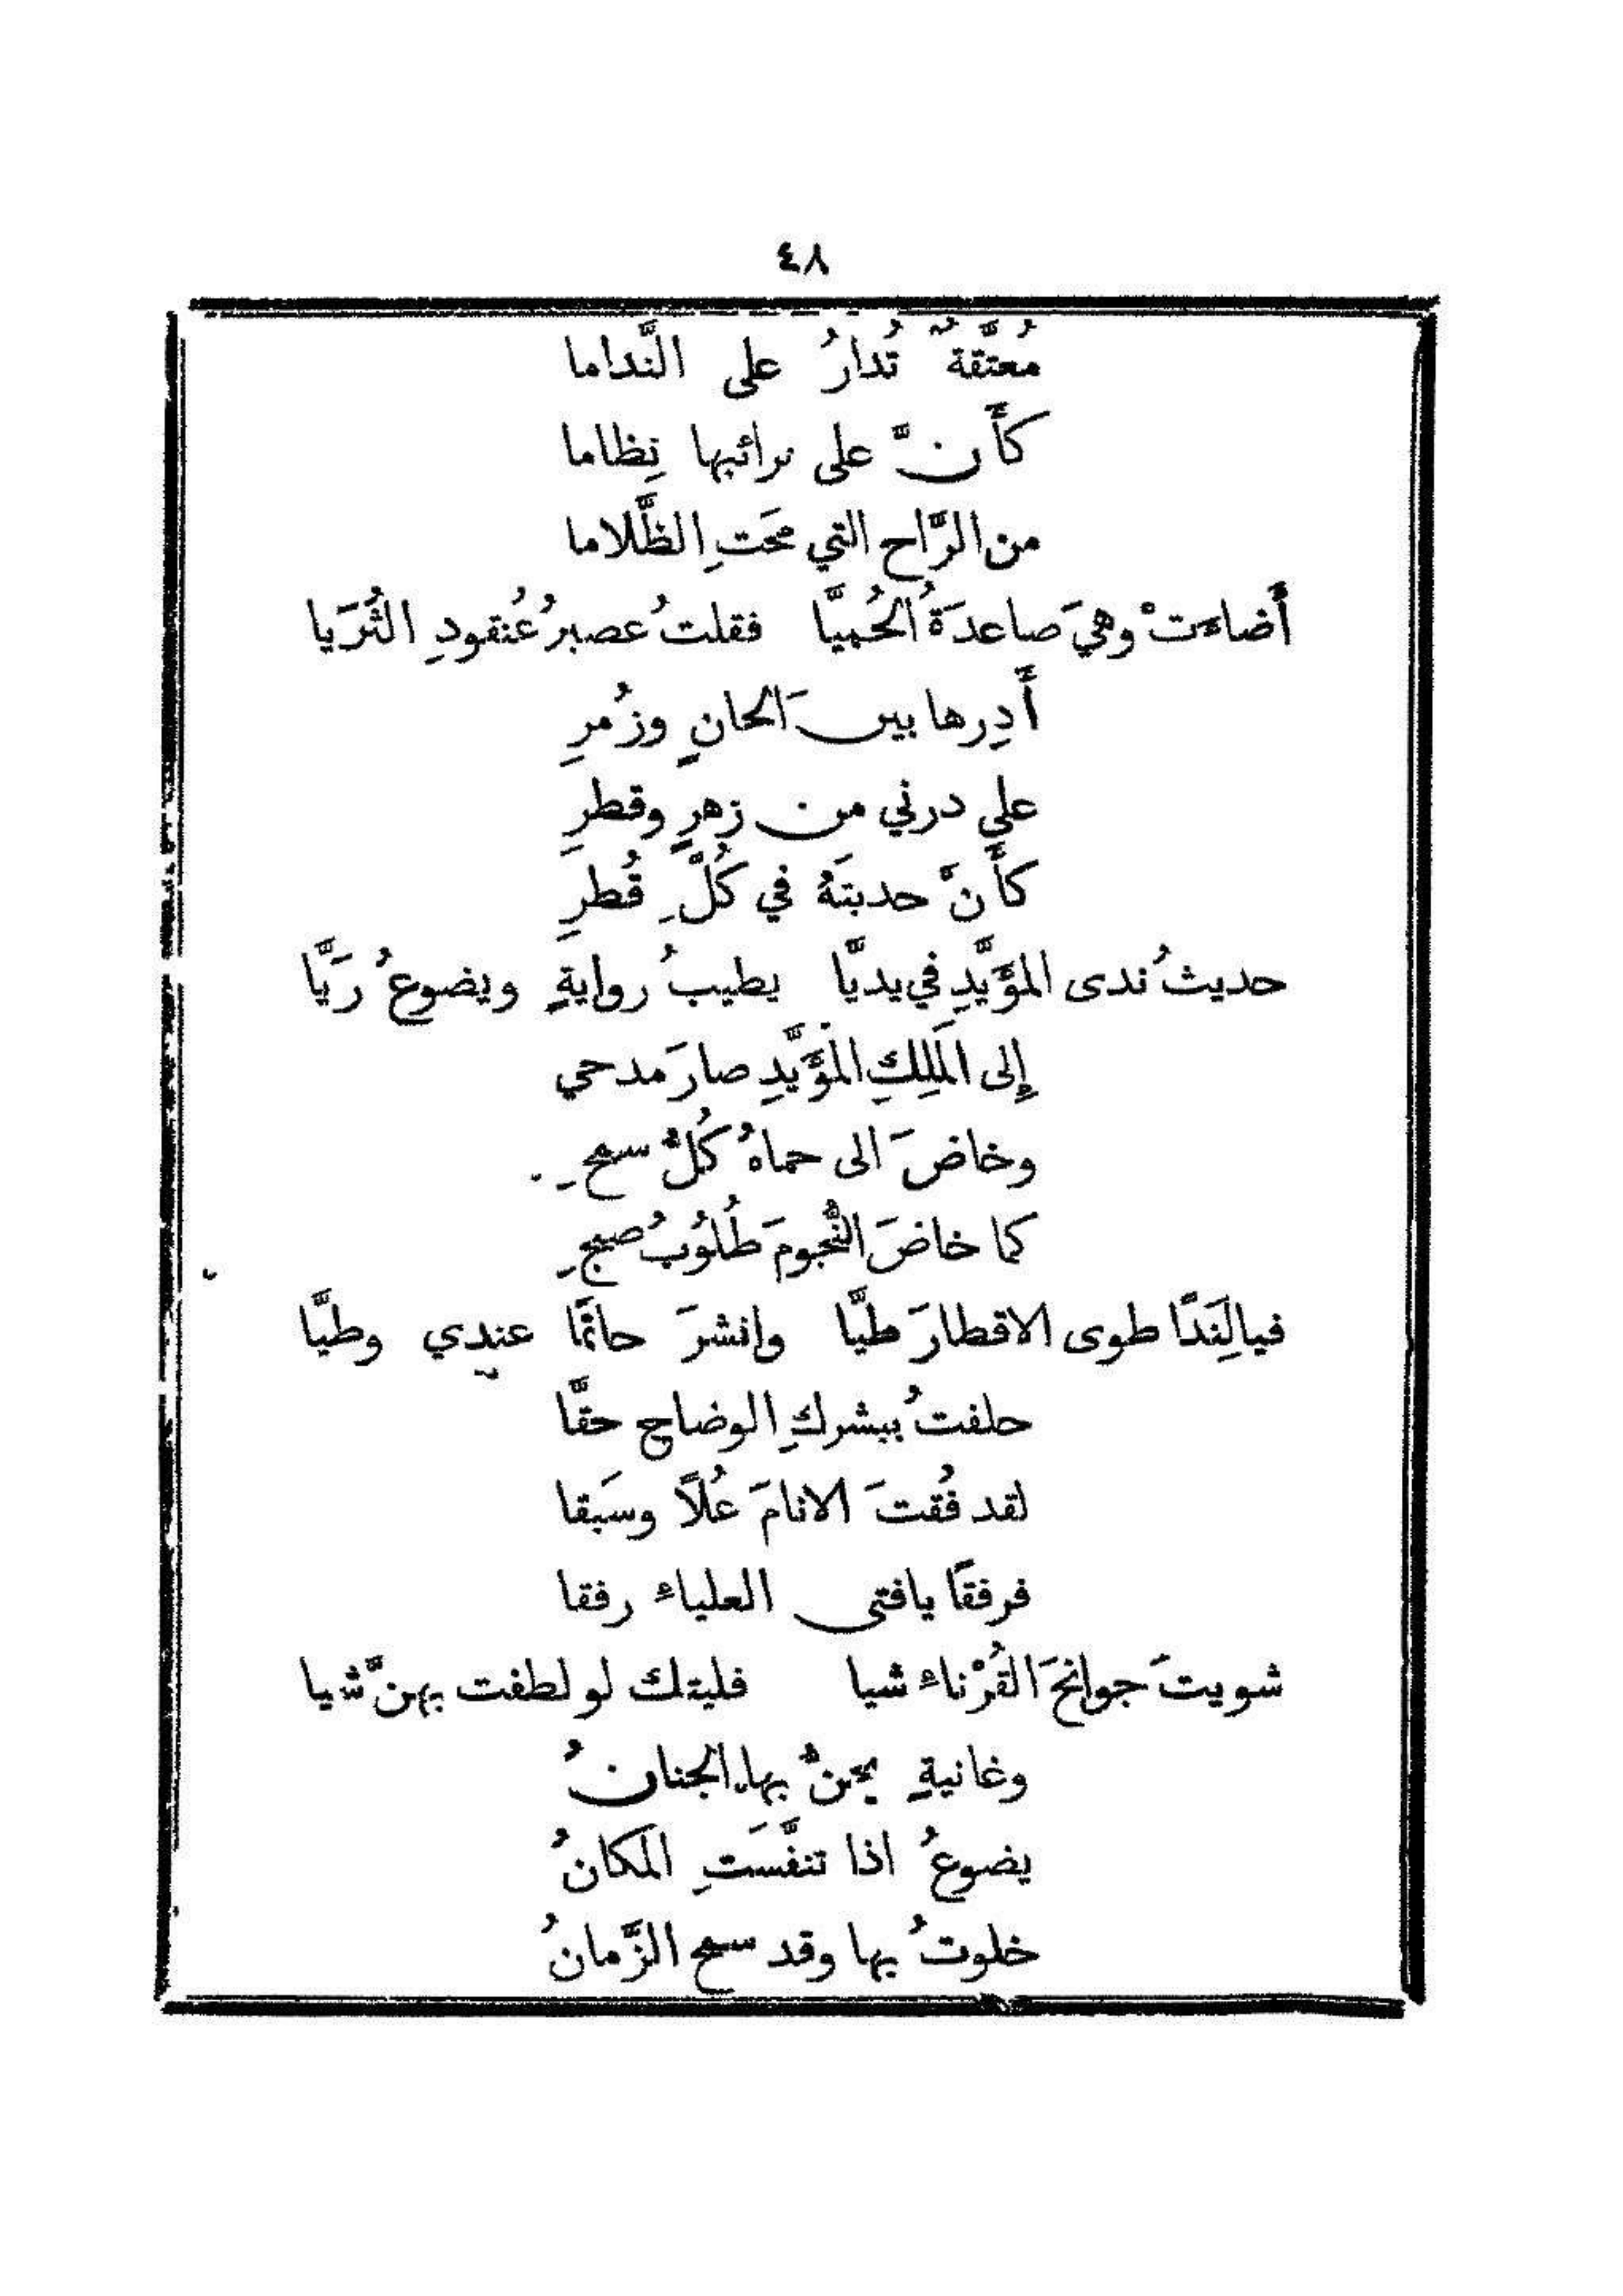 ٤٨
مُعتَّقةٌ تُدارُ على النَّداما
كأَنَّ على ترائبها نِظاما
من الرَّاح التي محَتِ الظَّلاما
أَضاءَتْ وهيَ صاعدَةُ الحُميَّا فقلتُ عصيرُ عُنقودِ الثُرَيا
أَدِرها بينَ الحانٍ وزُمرِ
على درني من زهرٍ وقطرِ
كأَنَّ حديثَهُ في كُلِّ قُطرِ
حديثُ ندى المؤَيَّدِ في يديَّا يطيبُ روايةً ويضوعُ رَيَّا
إِلى المَلِكِ المؤَيَّدِ صارَ مدحي
وخاضَ الى حماهُ كُلُّ سمحِ
كما خاضَ النُّجومَ طُلُوبُ صبحِ
فيا لَنَدًا طوى الاقطارَ طيَّا وانشرَ حاتمًا عندي وطيَّا
حلفتُ ببشركِ الوضاح حقَّا
لقد فُقتَ الانامَ عُلاً وسَبقا
فرفقًا يافتى العلياءِ رفقا
شويتَ جوانحَ القُرْناءِ شيا فليتك لو لطفت بهنَّ شيا
وغانيةٍ يحنُّ بها الجنانُ
يضوعُ اذا تنفَّسَتِ المكانُ
خلوتُ بها وقد سمح الزَّمانُ